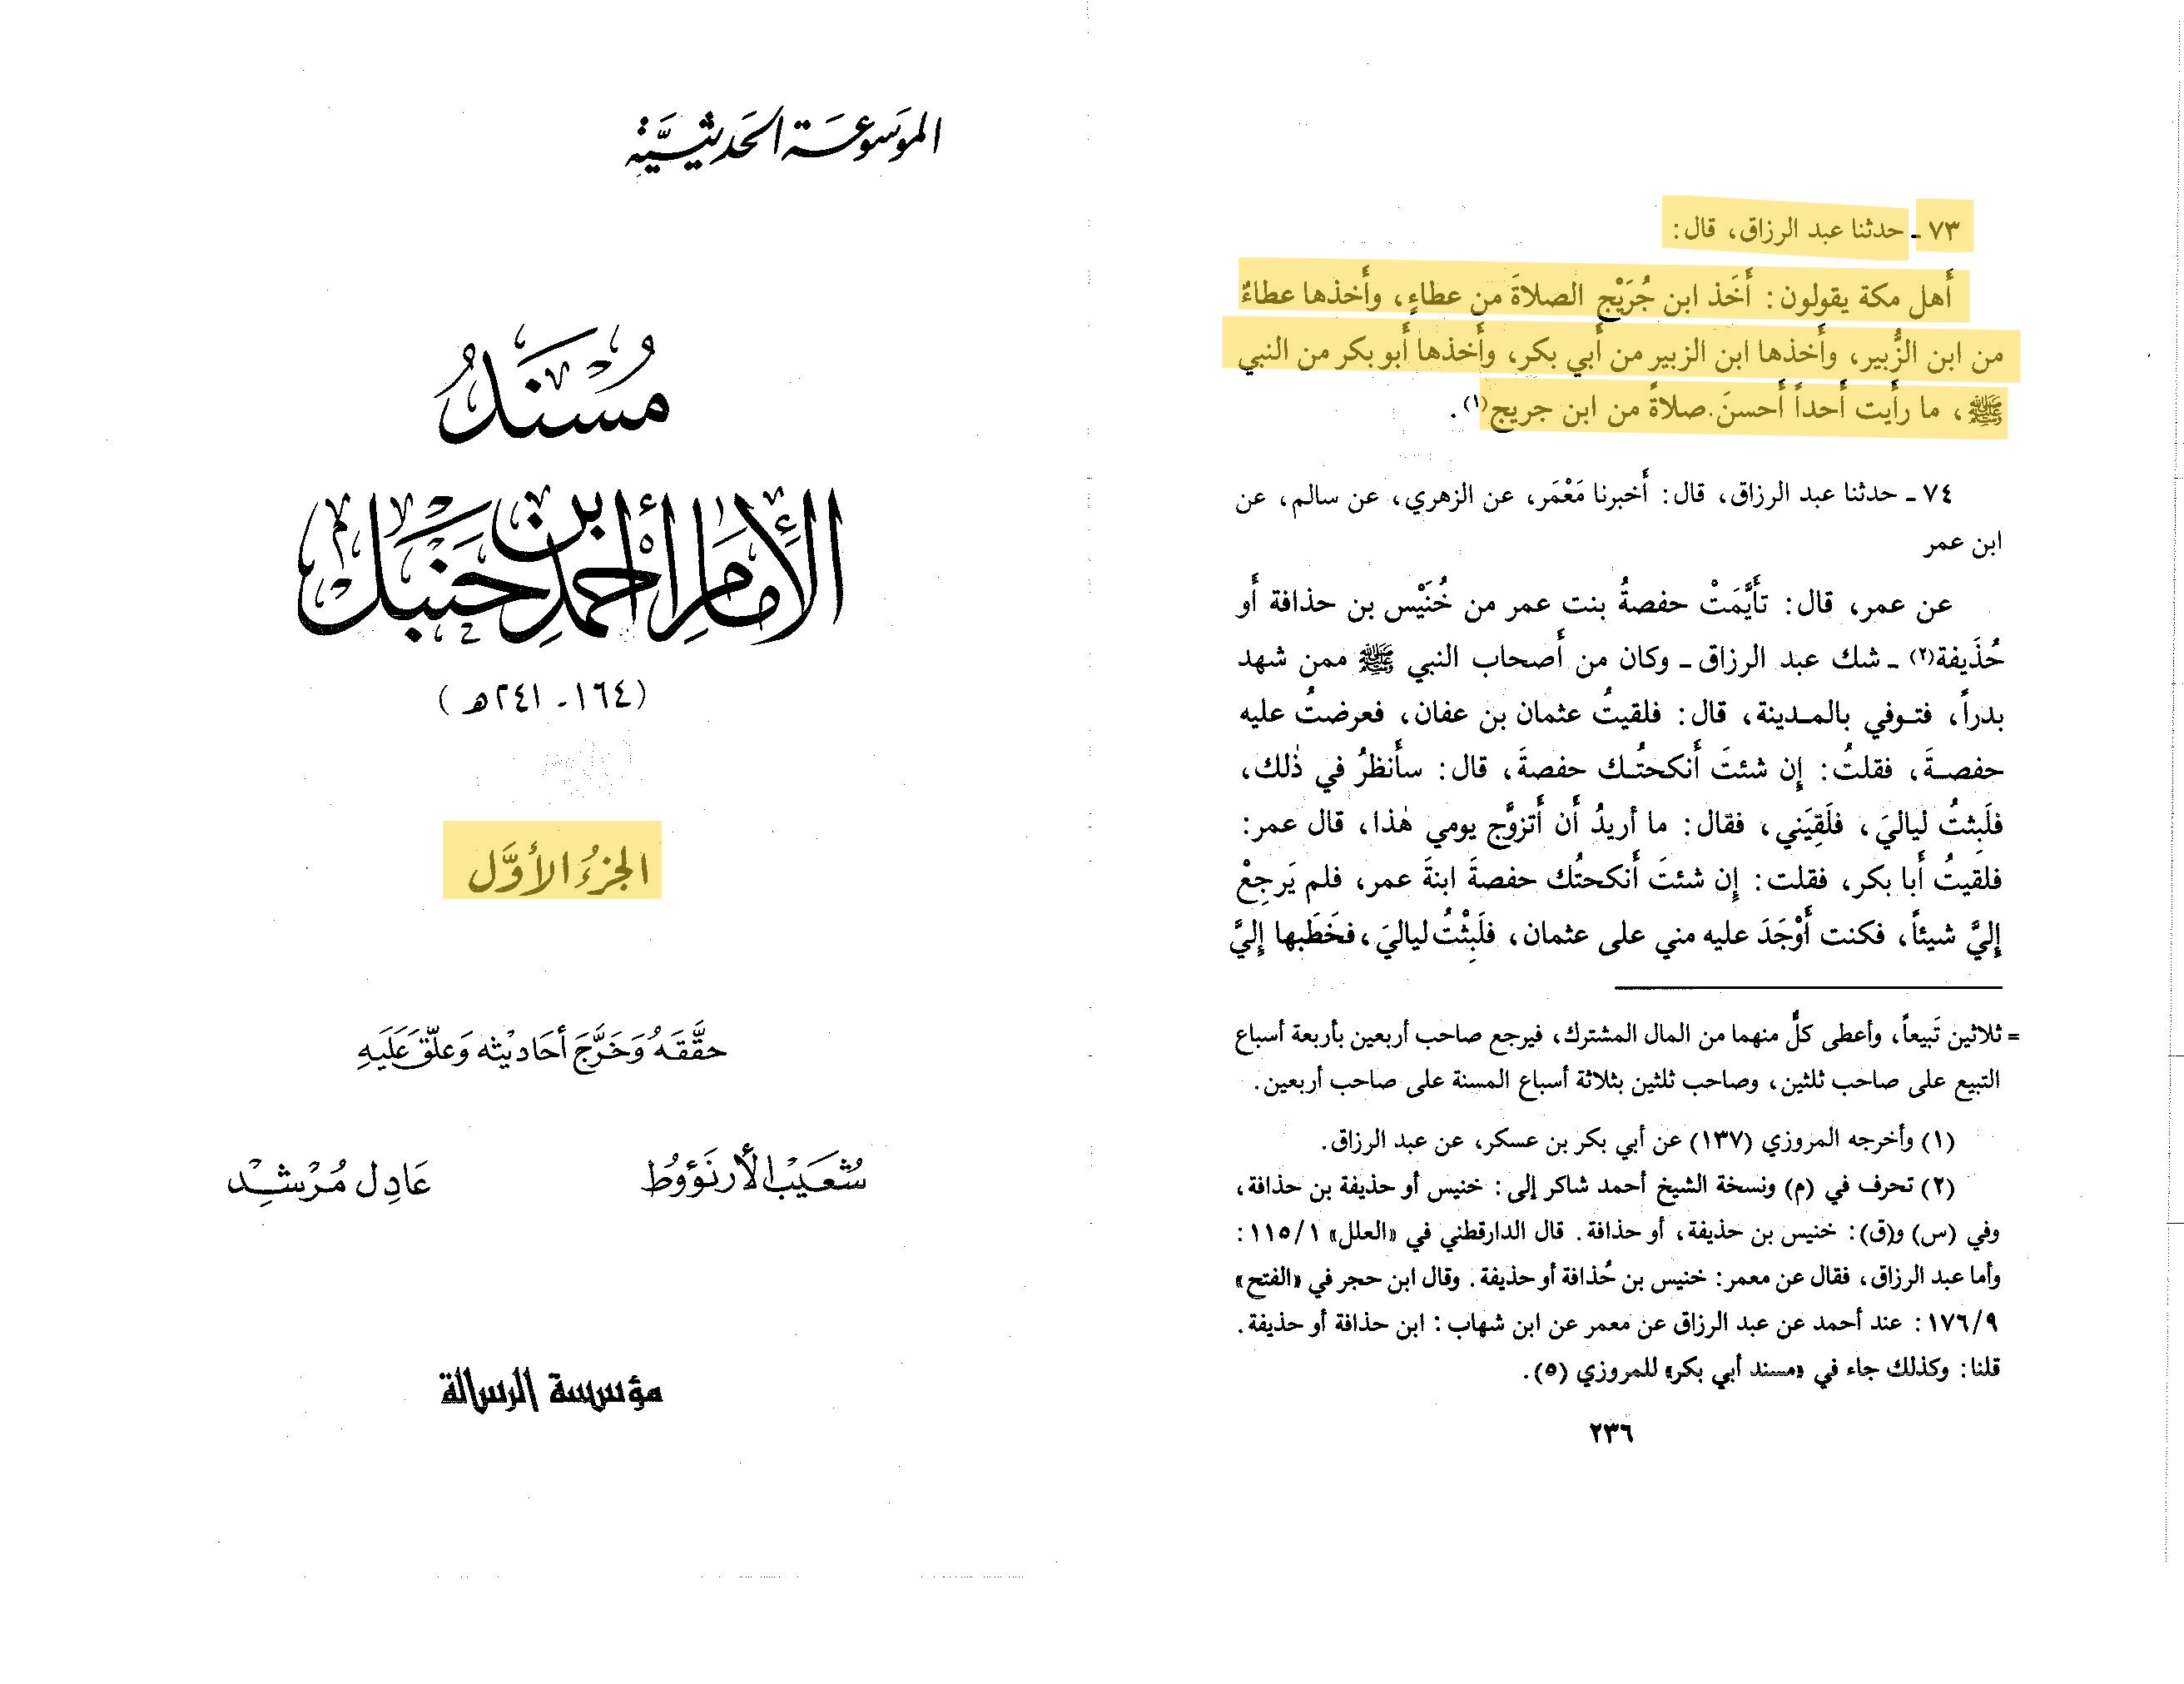 الموسوعة الحديثية
مُسْنَدُ
الإمام أحمد بن حنبل
(١٦٤ - ٢٤١ هـ)
الجزءُ الأوَّل
حقَّقَهُ وَخَرَّجَ أحَاديثه وَعلّقَ عَلَيهِ
شعَيبْ الأرنَؤوُط
عَادِل مُرْشِد
مؤسسة الرسالة
٧٣ - حدثنا عبد الرزاق، قال:
أَهل مكة يقولون: أَخَذ ابن جُرَيْج الصلاةَ من عطاءٍ، وأَخذها عطاءٌ
من ابن الزُّبير، وأَخذها ابن الزبير من أَبي بكر، وأَخذها أَبو بكر من النبي
ﷺ، ما رأَيت أَحداً أَحسنَ صلاةً من ابن جريج(١).
٧٤ - حدثنا عبد الرزاق، قال: أَخبرنا مَعْمَر، عن الزهري، عن سالم، عن
ابن عمر
عن عمر، قال: تأَيَّمَتْ حفصةُ بنت عمر من خُنَيْس بن حذافة أَو
حُذَيفة(٢) - شك عبد الرزاق - وكان من أَصحاب النبي ﷺ ممن شهد
بدراً، فتوفي بالمدينة، قال: فلقيتُ عثمان بن عفان، فعرضتُ عليه
حفصةَ، فقلتُ: إِن شئتَ أَنكحتُك حفصةَ، قال: سأَنظرُ في ذٰلك،
فلَبِثتُ لياليَ، فلَقِيَني، فقال: ما أريدُ أَن أَتزوَّج يومي هٰذا، قال عمر:
فلقيتُ أَبا بكر، فقلت: إِن شئتَ أَنكحتُك حفصةَ ابنةَ عمر، فلم يَرجِعْ
إِليَّ شيئاً، فكنت أَوْجَدَ عليه مني على عثمان، فلَبِثْتُ لياليَ، فخَطَبها إِليَّ
= ثلاثين تَبيعاً، وأعطى كلٌّ منهما من المال المشترك، فيرجع صاحب أربعين بأربعة أسباع
التبيع على صاحب ثلثين، وصاحب ثلثين بثلاثة أسباع المسنة على صاحب أربعين.
(١) وأخرجه المروزي (١٣٧) عن أبي بكر بن عسكر، عن عبد الرزاق.
(٢) تحرف في (م) ونسخة الشيخ أحمد شاكر إلى: خنيس أو حذيفة بن حذافة،
وفي (س) و(ق): خنيس بن حذيفة، أو حذافة. قال الدارقطني في «العلل» ١١٥/١:
وأما عبد الرزاق، فقال عن معمر: خنيس بن حُذافة أو حذيفة. وقال ابن حجر في «الفتح»
١٧٦/٩: عند أحمد عن عبد الرزاق عن معمر عن ابن شهاب: ابن حذافة أو حذيفة.
قلنا: وكذلك جاء في «مسند أبي بكر» للمروزي (٥).
٢٣٦